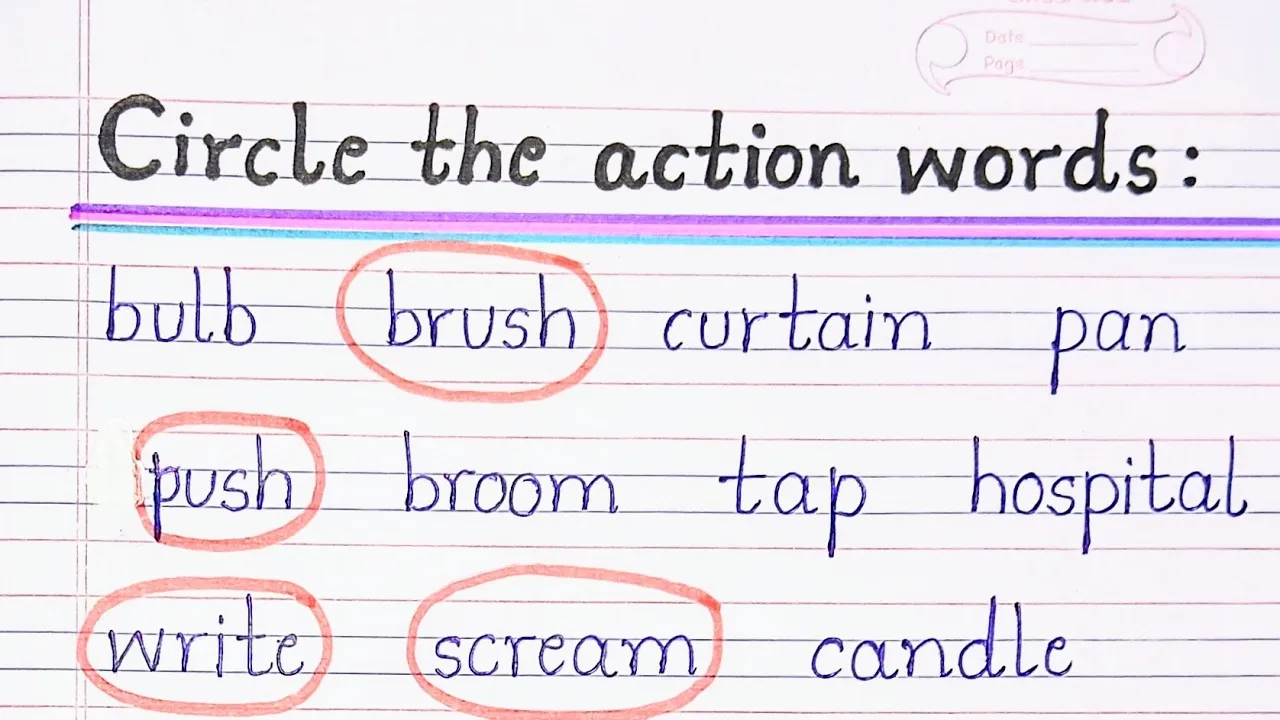 Date
Page
Circle the action words:
bulb brush curtain pan
push broom tap hospital
write scream candle